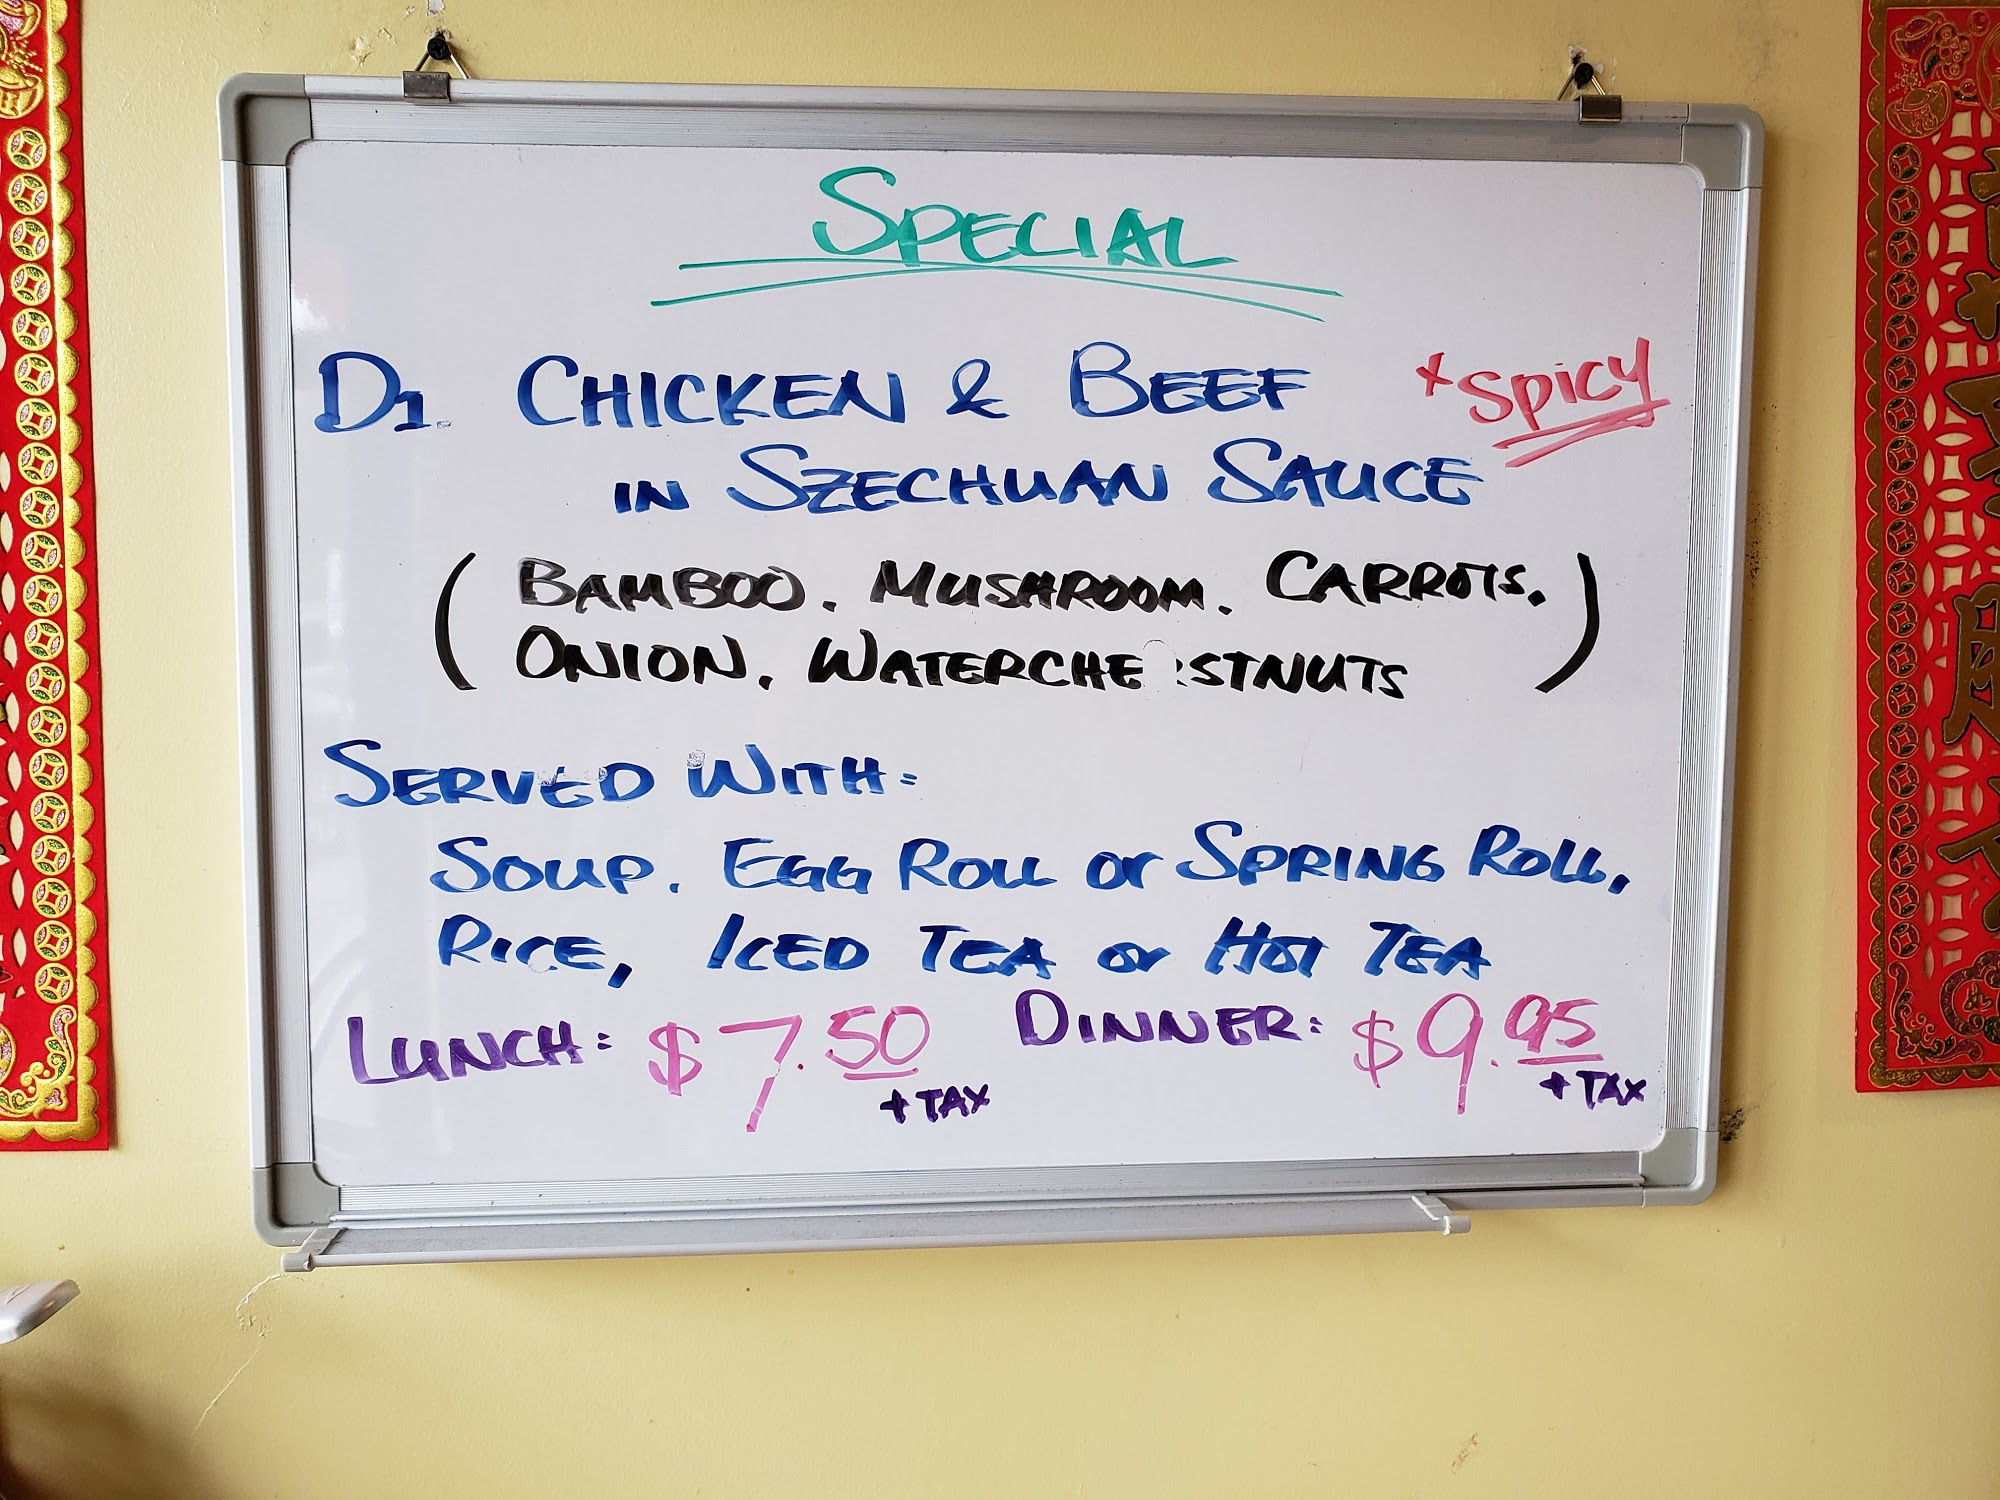 SPECIAL
D1. CHICKEN & BEEF *SPICY
IN SZECHUAN SAUCE
(BAMBOO. MUSHROOM. CARROTS,
ONION, WATERCHESTNUTS)
SERVED WITH:
SOUP. EGG ROLL or SPRING ROLL,
RICE, ICED TEA or HOT TEA
LUNCH: $7.50 DINNER: $9.95
+ TAX + TAX